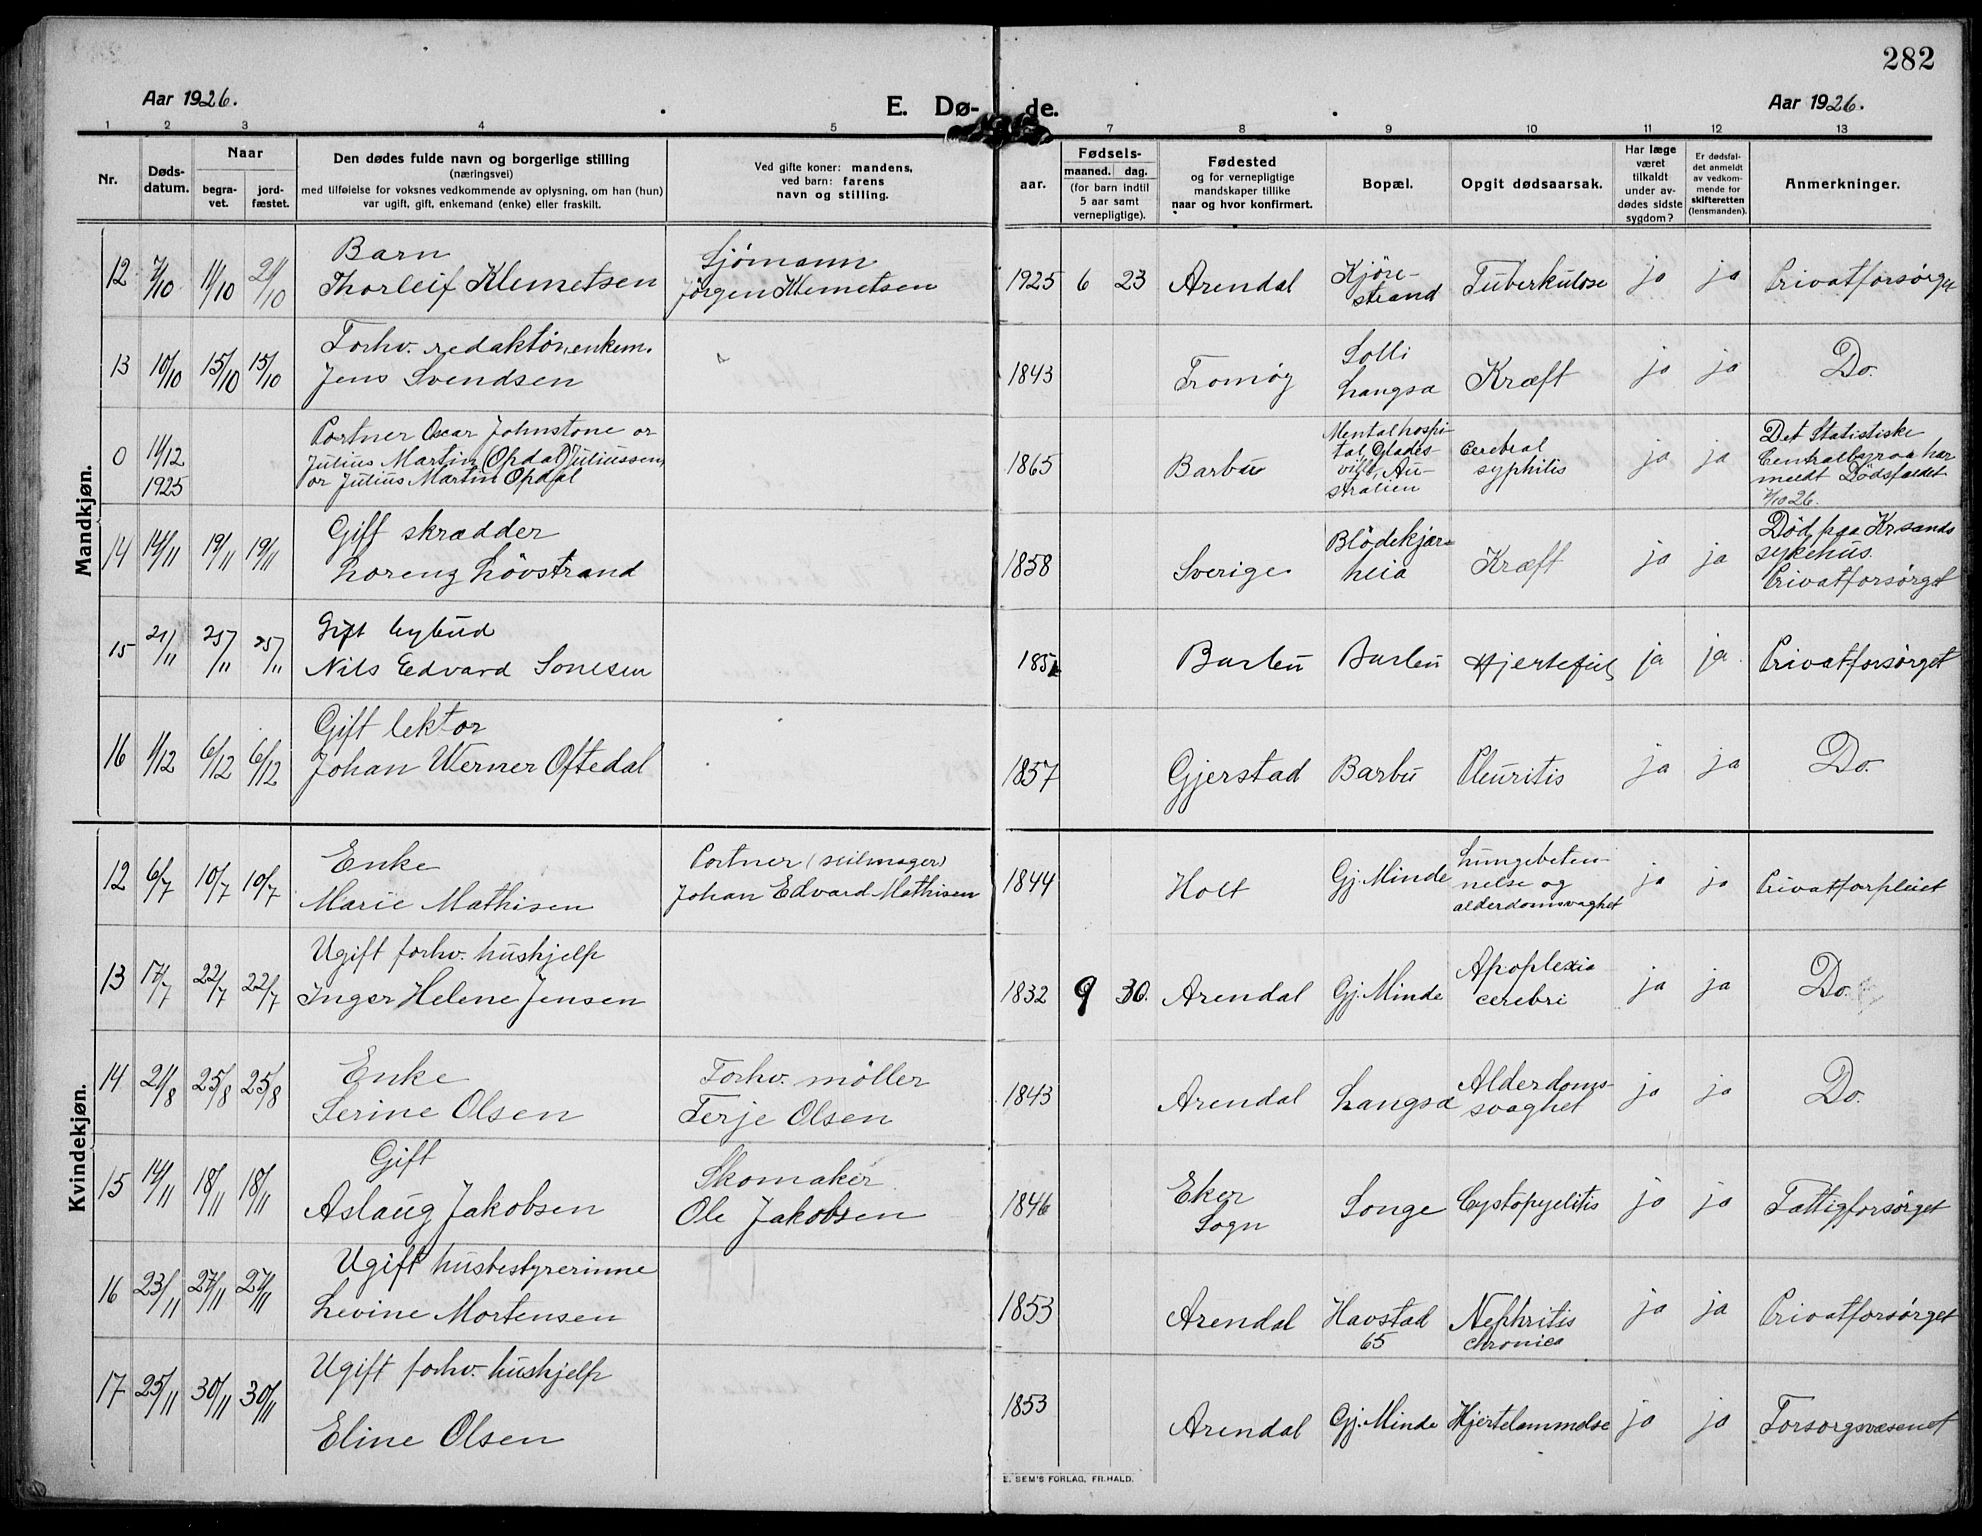 282
Aar 1926.
E. Dø-
de.
Aar 1926.
1 2 3 4 5 7 8 9 10 11 12 13
Nr.
Døds-
datum.
Naar
begra-
vet.
jord-
fæstet.
Den dødes fulde navn og borgerlige stilling
(næringsvei)
med tilføielse for voksnes vedkommende av oplysning, om han (hun)
var ugift, gift, enkemand (enke) eller fraskilt.
Ved gifte koner: mandens,
ved barn: farens
navn og stilling.
aar.
Fødsels-
maaned. dag.
(for barn indtil
5 aar samt
vernepligtige).
Fødested
og for vernepligtige
mandskaper tillike
naar og hvor konfirmert.
Bopæl.
Opgit dødsaarsak.
Har læge
været
tilkaldt
under av-
dødes sidste
sygdom?
Er dødsfal-
det anmeldt
av vedkom-
mende for
skifteretten
(lensmanden).
Anmerkninger.
Mandkjøn.
12 7/10 11/10 21/10
Barn
Thorleif Klemetsen
Sjømann
Jørgen Klemetsen
1925 6 23 Arendal
Kjøre-
strand
Tuberkulose ja ja Privatforsørget
13 10/10 15/10 15/10
Forhv. redaktør, enkem.
Jens Svendsen
1843 Tromøy
Solli
Langsa
Kræft ja ja Do.
0 11/12
1925
Portner Oscar Johnstone or
Julius Martin (Opdal) Juliussen,
or Julius Martin Opdal
1865 Barbu
Mentalhospi-
tal, Glades-
ville, Au-
stralien
Cerebral
syphilis
ja ja
Det Statistiske
Centralbyraa har
meldt Dødsfaldet
26.
14 14/11 19/11 19/11
Gift skrædder
Lorenz Løvstrand
1858 Sverige
Blödekjær-
heia
Kræft ja ja
Død paa Kr.sands
sykehus.
Privatforsørget
15 21/11 25/11 25/11
Gift bybud
Nils Edvard Sonesen
Barbu Barbu Hjertefeil ja ja. Privatforsørget
16 1/12 6/12 6/12
Gift lektor
Johan Werner Oftedal
1857 Gjerstad Barbu Pleuritis ja ja Do.
Kvindekjøn.
12 6/7 10/7 10/7
Enke
Marie Mathisen
Portner (seilmager)
Johan Edvard Mathisen
1844 Holt Gj. Minde
Lungebeten-
nelse og
alderdomsvaghet
ja ja Privatforpleiet
13 17/7 22/7 22/7
Ugift forhv. hushjelp
Inger Helene Jensen
1832 9 30. Arendal Gj. Minde
Apoplexia
cerebri
ja ja Do.
14 21/8 25/8 25/8
Enke
Serine Olsen
Forhv. møller
Terje Olsen
1843 Arendal Langsa
Alderdoms-
svaghet
ja ja Do.
15 14/11 18/11 18/11
Gift
Aslaug Jakobsen
Skomaker
Ole Jakobsen
1846
Eker
Sogn
Songe Cystopyelitis ja ja Fattigforsørget
16 23/11 27/11 27/11
Ugift husbestyrerinne
Levine Mortensen
1853 Arendal
Havstad
65
Nephritis
chronica
ja ja Privatforsørget
17 25/11 30/11 30/11
Ugift forhv. hushjelp
Eline Olsen
1853 Arendal Gj. Minde Hjertelammelse ja ja Forsorgsvæsenet
E. SEM'S FORLAG, FR.HALD.